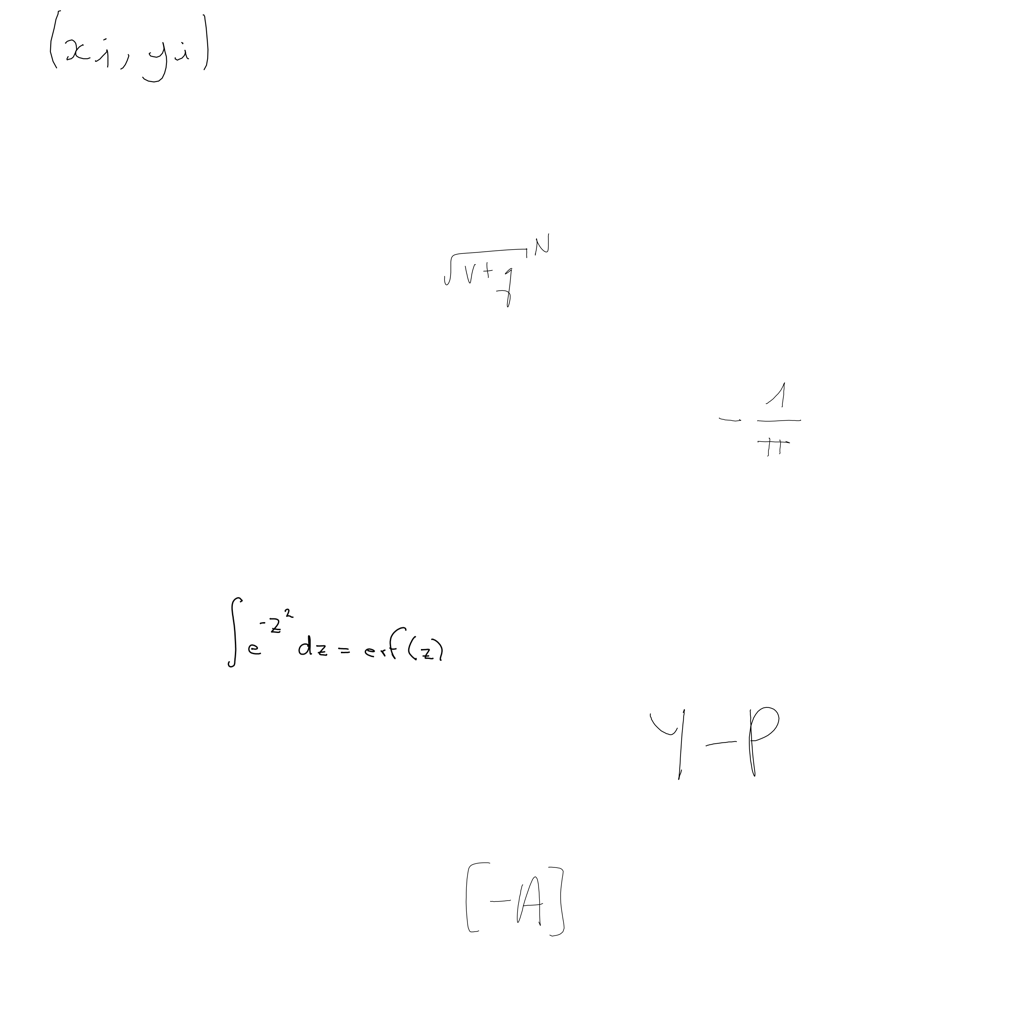 (xi, yi)
√(V+q)^N
-1/π
∫e^(-z²) dz = erf(z)
Y-P
[-A]